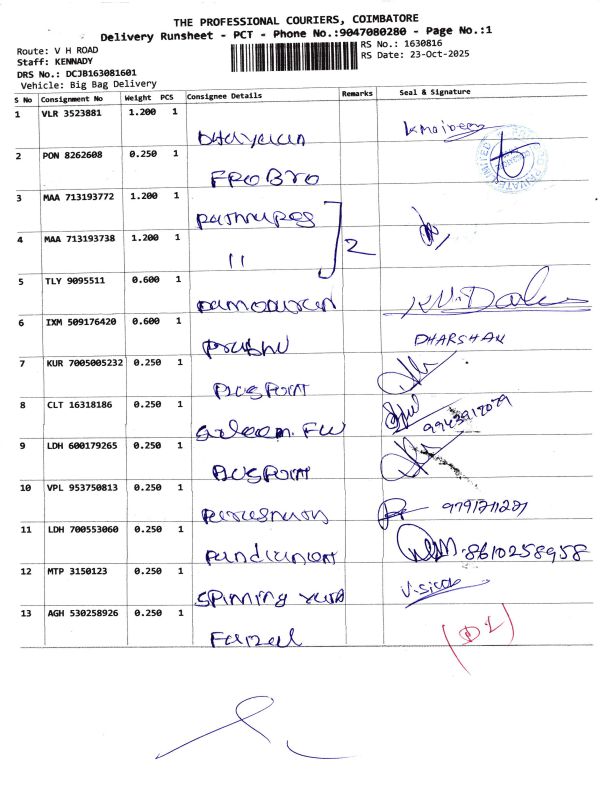 THE PROFESSIONAL COURIERS, COIMBATORE
Delivery Runsheet - PCT - Phone No.:9047080280 - Page No.:1
Route: V H ROAD
RS No.: 1630816
Staff: KENNADY
RS Date: 23-Oct-2025
DRS No.: DCJB163081601
Vehicle: Big Bag Delivery
S No Consignment No Weight PCS Consignee Details Remarks Seal & Signature
1 VLR 3523881 1.200 1
2 PON 8262608 0.250 1
FPO BRO
3 MAA 713193772 1.200 1
4 MAA 713193738 1.200 1
11 2
5 TLY 9095511 0.600 1
Damodaran
6 IXM 509176420 0.600 1 DHARSHAN
Prabhu
7 KUR 7005005232 0.250 1
Plus Point
8 CLT 16318186 0.250 1 9943912029
Saleem. FW
9 LDH 600179265 0.250 1
Plus Point
10 VPL 953750813 0.250 1 9791711221
11 LDH 700553060 0.250 1 8610258958
12 MTP 3150123 0.250 1
Spinning
13 AGH 530258926 0.250 1
Faizal